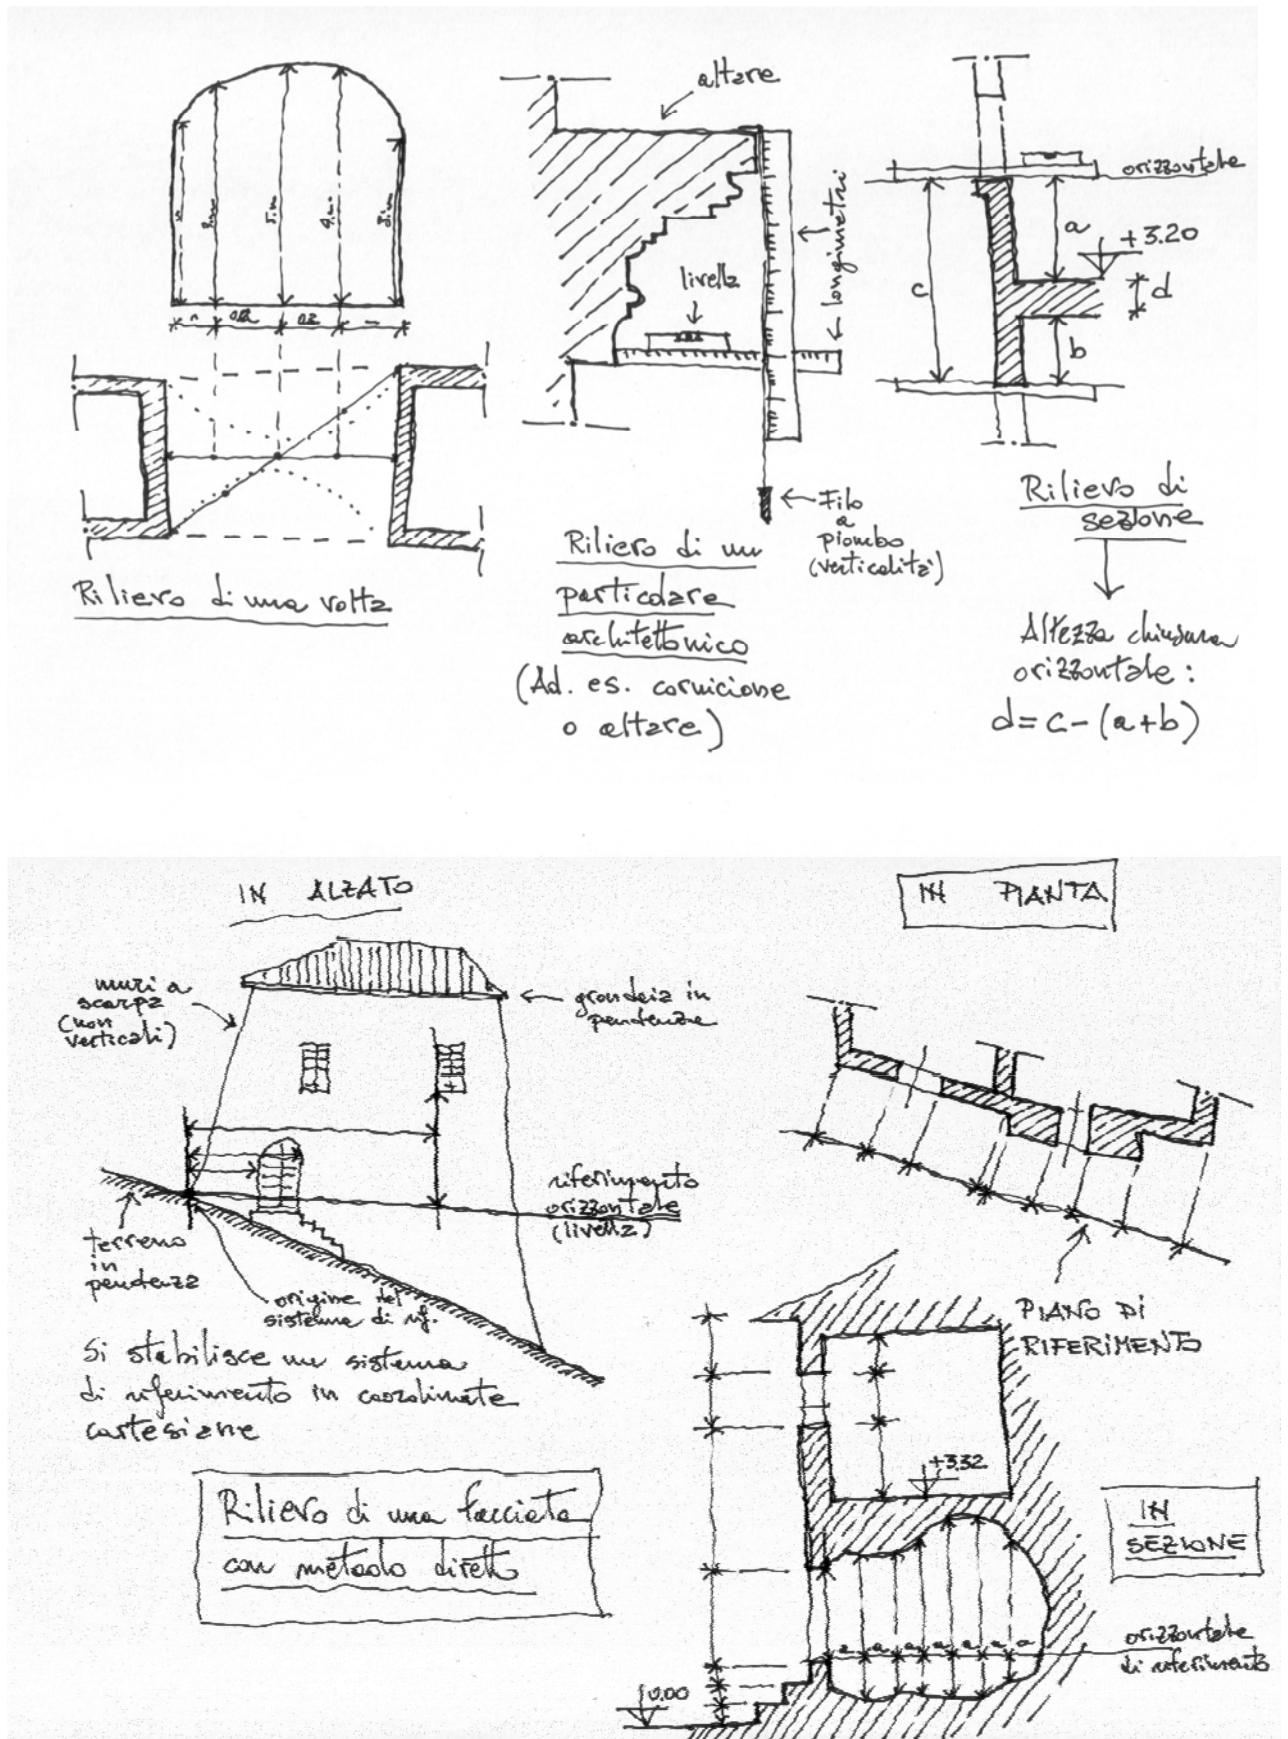 Rilievo di una volta
altare
livella
longimetri
Filo
a
piombo
(verticalità)
Rilievo di un
particolare
architettonico
(Ad. es. cornicione
o altare)
orizzontale
a
+3.20
c
d
b
Rilievo di
sezione
Altezza chiusura
orizzontale:
d=c-(a+b)
IN ALZATO
muri a
scarpa
(non
verticali)
grondaia in
pendenza
riferimento
orizzontale
(livella)
terreno
in
pendenza
origine del
sistema di rif.
Si stabilisce un sistema
di riferimento in coordinate
cartesiane
Rilievo di una facciata
con metodo diretto
IN PIANTA
PIANO DI
RIFERIMENTO
+3.32
IN
SEZIONE
a a a a a a a
orizzontale
di riferimento
0.00